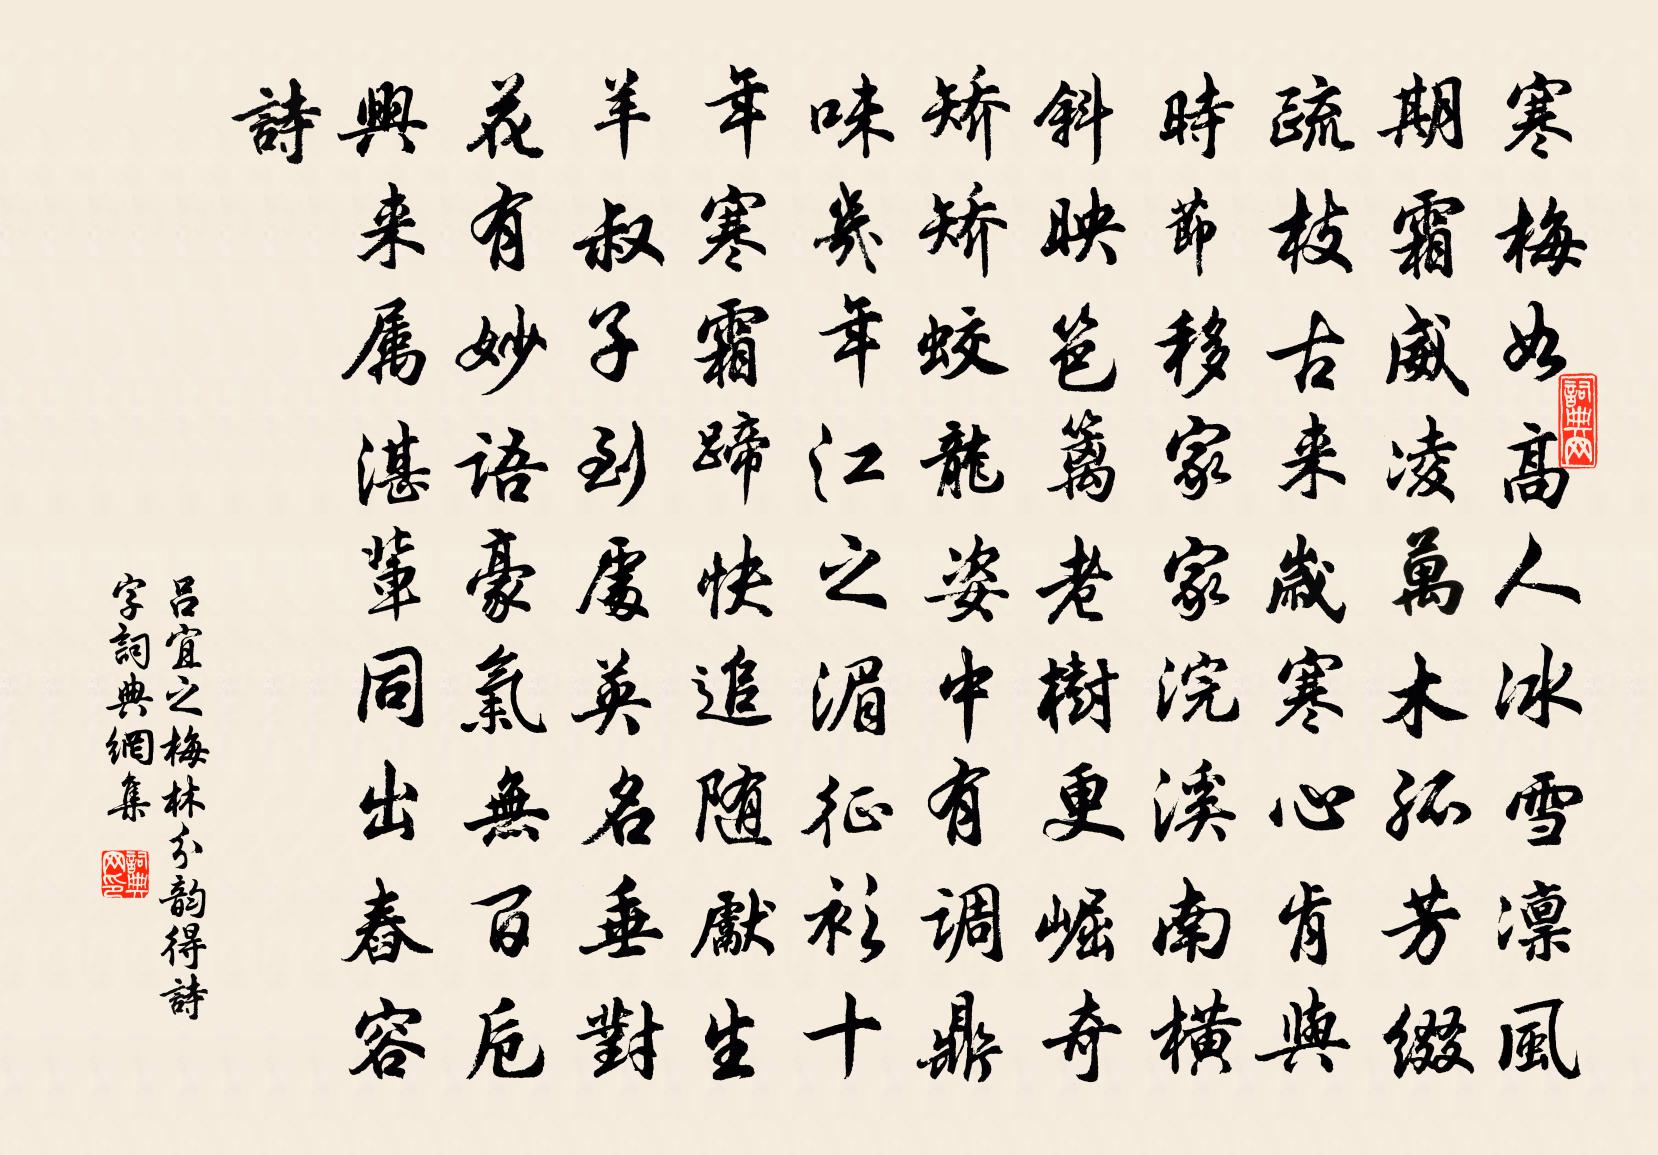 寒梅如高人冰雪凛風
期霜威凌萬木孤芳綴
疏枝古来歳寒心肯與
時節移家家浣溪南橫
斜映笆篱老樹更崛奇
矯矯蛟龍姿中有调鼎
味幾年江之湄征衫十
年寒霜蹄快追随獻生
羊叔子到處英名垂對
花有妙語豪氣無百卮
興来属湛輩同出春容
詩
呂宜之梅林分韵得詩
字詞典網集
詞典网
詞典网印